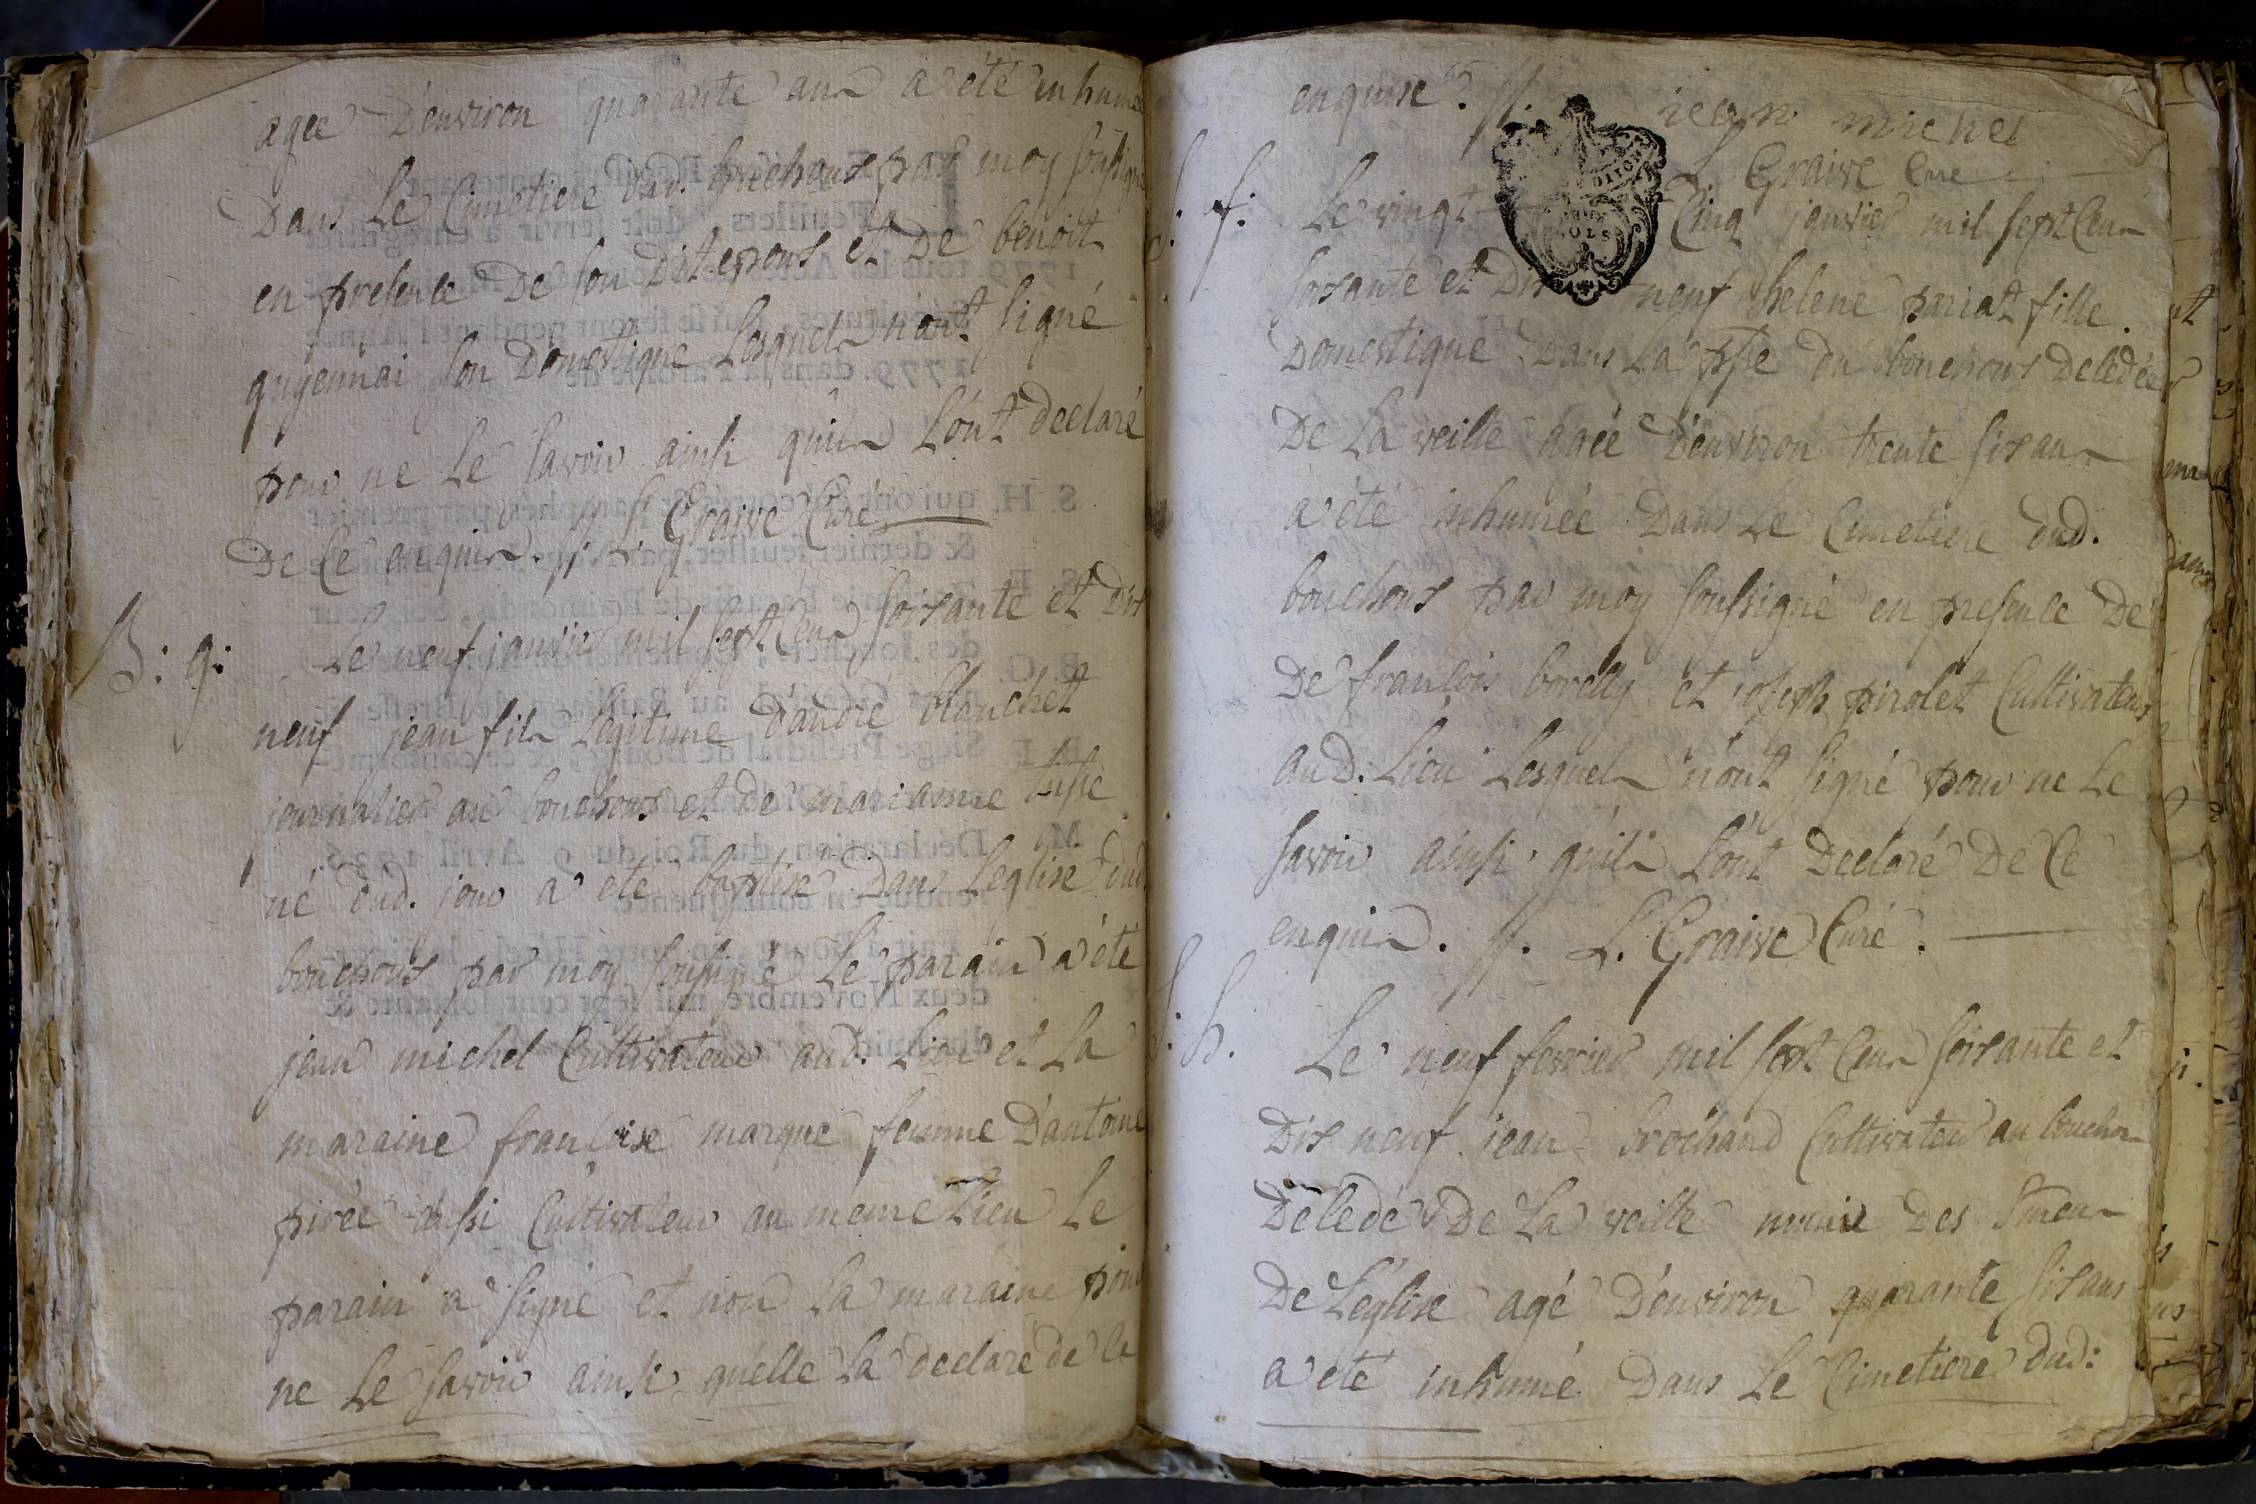 agée D'environ quarante ans a été inhumé
Dans Le Cimetiere dud. bouchoux par moy soussigné
en presence De son dit epoux et De benoit
guyennai son Domestique Lesquels n'ont signé
pour ne Le savoir ainsi qu'ils L'ont declaré
De Ce enquis. //. L. Graive Curé
B: g:
Le neuf janvier mil sept Cens soixante et Dix
neuf jean fils Legitime d'andré blanchet
journalier au bouchoux et de marianne
né dud. jour a eté baptisé Dans L'eglise dud
bouchoux par moy soussigné Le parain a été
jean michel Cultivateur aud. Lieu et La
maraine francoise marque femme D'antoine
pirée aussi Cultivateur au meme Lieu Le
parain a signé et non La maraine pour
ne Le savoir ainsi qu'elle La declaré de Ce
enquise. //. jean michel
L Graive Curé
S. f: Le vingt Cinq janvier mil sept Cens
soixante et Dix neuf helene pariat fille
Domestique Dans La psse du bouchoux Decedée
De La veille agée D'environ trente six ans
a été inhumée Dans Le Cimetiere dud.
bouchoux par moy soussigné en presence De
De francois et joseph pirolet Cultivateurs
aud. Lieu Lesquels n'ont signé pour ne Le
savoir ainsi qu'ils L'ont Declaré De Ce
enquis. //. L. Graive Curé.
S. h.
Le neuf fevrier mil sept Cens soixante et
Dix neuf jean brochand Cultivateur au bouchoux
Decedé De La veille munie Des Smens
De L'eglise agé D'environ quarante six ans
a eté inhumé Dans Le Cimetiere dud: